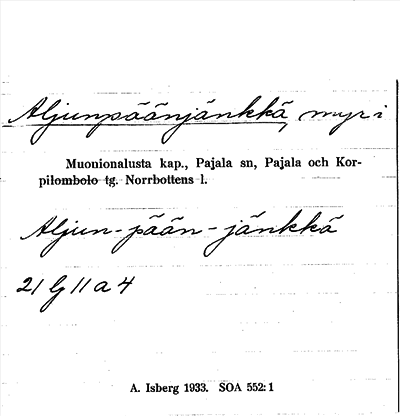 Aljunpäänjänkkä, myr i
Muonionalusta kap., Pajala sn, Pajala och Kor-
pilombolo tg. Norrbottens l.
Aljun-pään-jänkkä
21 lj 11 a 4
A. Isberg 1933. SOA 552: 1